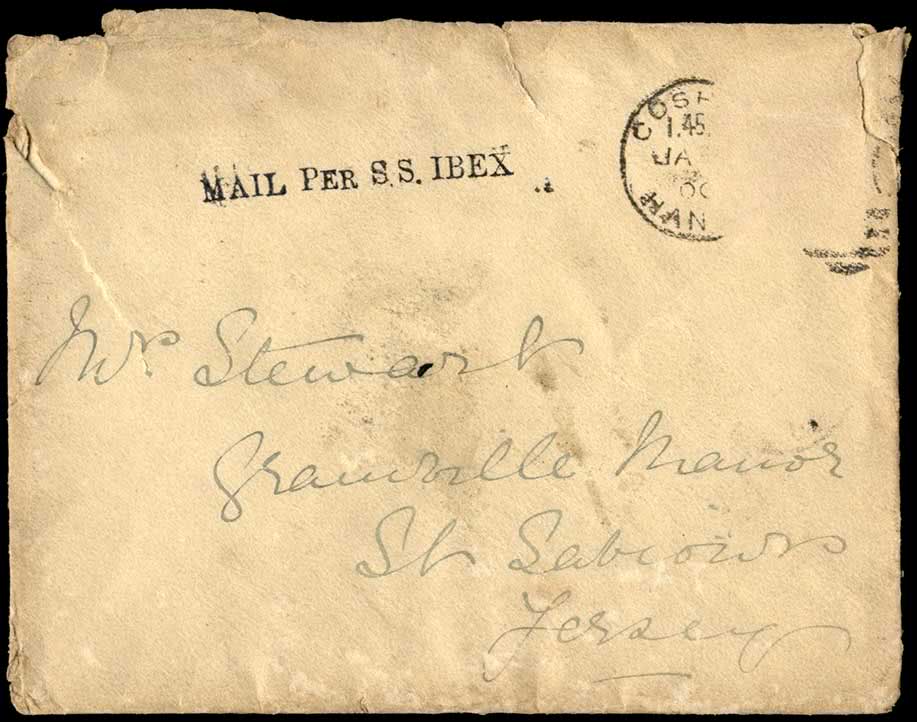 COSH
1.45
JA
00
HAN
MAIL PER S.S. IBEX
Mrs Stewart
Grainville Manor
St Saviours
Jersey